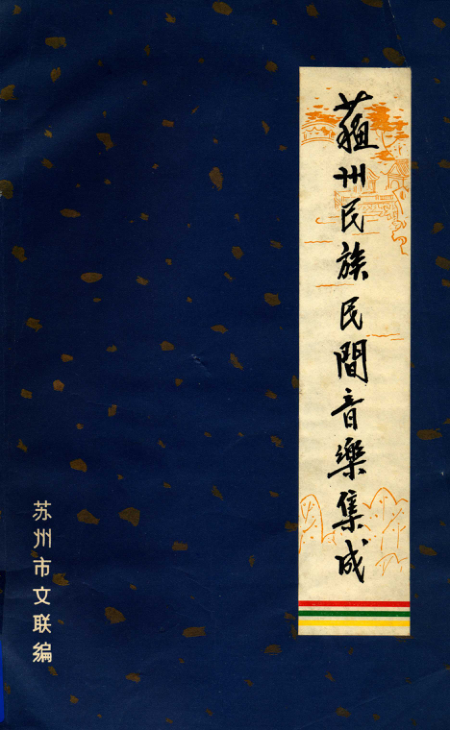 蘓州民族民間音樂集成
苏州市文联编